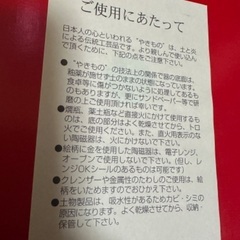 ご使用にあたって
日本人の心といわれる"やきもの"は、土と炎
による伝統工芸品です。より親しんで使い込ん
で頂くために、下記の点をご注意下さい。
●"やきもの"の技法上の関係で器の底面は、
釉薬が施せず土のままの状態になっています。
食卓等に傷がつかないように処理してあるも
のもありますが、更にサンドペーパー等で研
磨の上ご使用頂ければ幸いです。
●土瓶、薬土瓶など直接火にかけて使用するも
のは、底の部分はよく乾燥させてから、トロ
火でご使用ください。また、直火用表示のな
い陶磁器は、火にかけないで下さい。
●絵柄に金を使用した陶磁器は、電子レンジ、
オーブンで使用しないで下さい。(但し、レ
ンジOKシールのあるものは可能です)
●クレンザーや金属性のたわしのご使用は、絵
柄をいためますのでおひかえ下さい。
●土物製品は、吸水性があるためカビ・シミの
原因になります。よく乾燥させてから、収納・
保管して下さい。